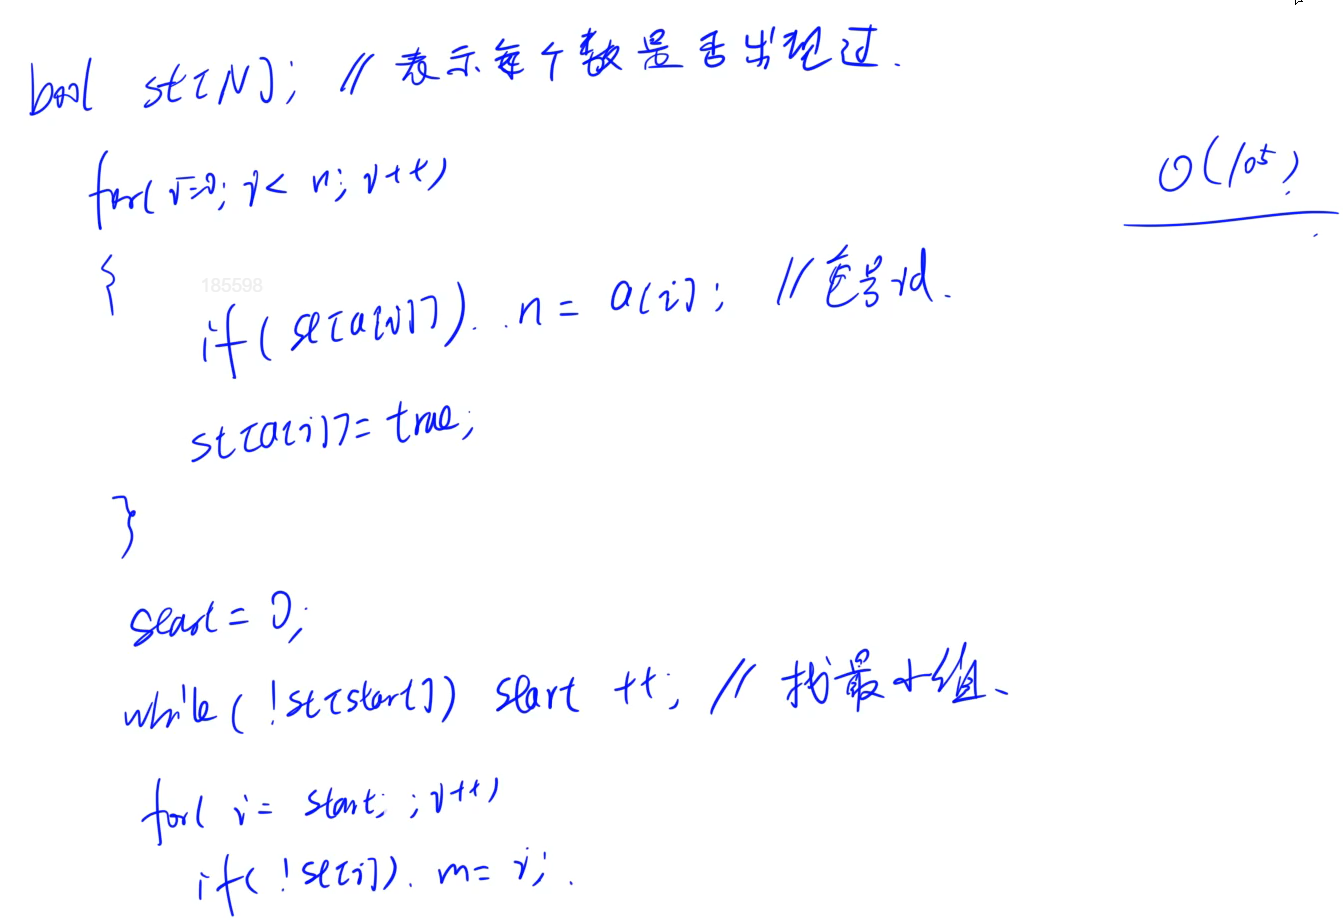 bool st[N]; // 表示每个数是否出现过.
O(10^5)
for(i=0; i< n; i++)
{
185598
if( st[a[i]]) n = a[i]; // 重号id.
st[a[i]]= true;
}
start = 0;
while( !st[start]) start ++; // 找最小值、
for( i= start; ;i++)
if( !st[i]). m= i;.